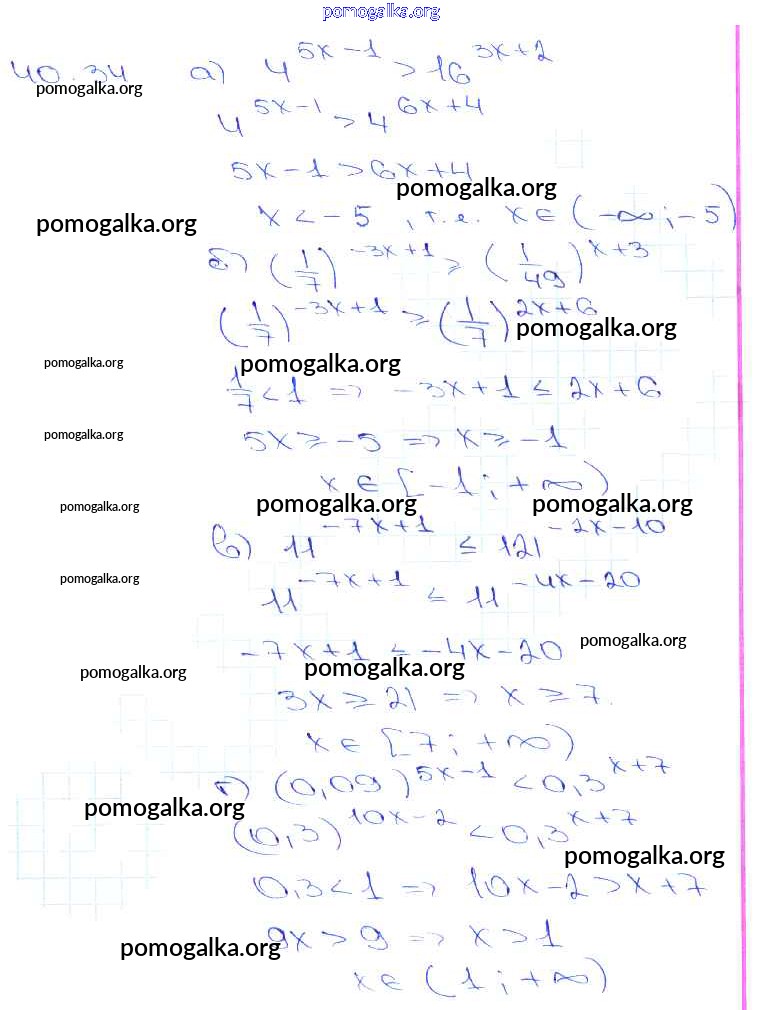 pomogalka.org
40.34 а) 4^(5x-1) > 16^(3x+2)
pomogalka.org
4^(5x-1) > 4^(6x+4)
5x-1 > 6x+4
pomogalka.org
pomogalka.org
x < -5, т.е. x ∈ (-∞; -5)
б) (1/7)^(-3x+1) ≥ (1/49)^(x+3)
(1/7)^(-3x+1) ≥ (1/7)^(2x+6)
pomogalka.org
pomogalka.org pomogalka.org
1/7 < 1 => -3x+1 ≤ 2x+6
pomogalka.org
5x ≥ -5 => x ≥ -1
x ∈ [-1; +∞)
pomogalka.org pomogalka.org pomogalka.org
в) 11^(-7x+1) ≤ 121^(-2x-10)
pomogalka.org
11^(-7x+1) ≤ 11^(-4x-20)
pomogalka.org
-7x+1 ≤ -4x-20
pomogalka.org pomogalka.org
3x ≥ 21 => x ≥ 7.
x ∈ [7; +∞)
г) (0,09)^(5x-1) < 0,3^(x+7)
pomogalka.org
(0,3)^(10x-2) < 0,3^(x+7)
pomogalka.org
0,3 < 1 => 10x-2 > x+7
9x > 9 => x > 1
pomogalka.org
x ∈ (1; +∞)